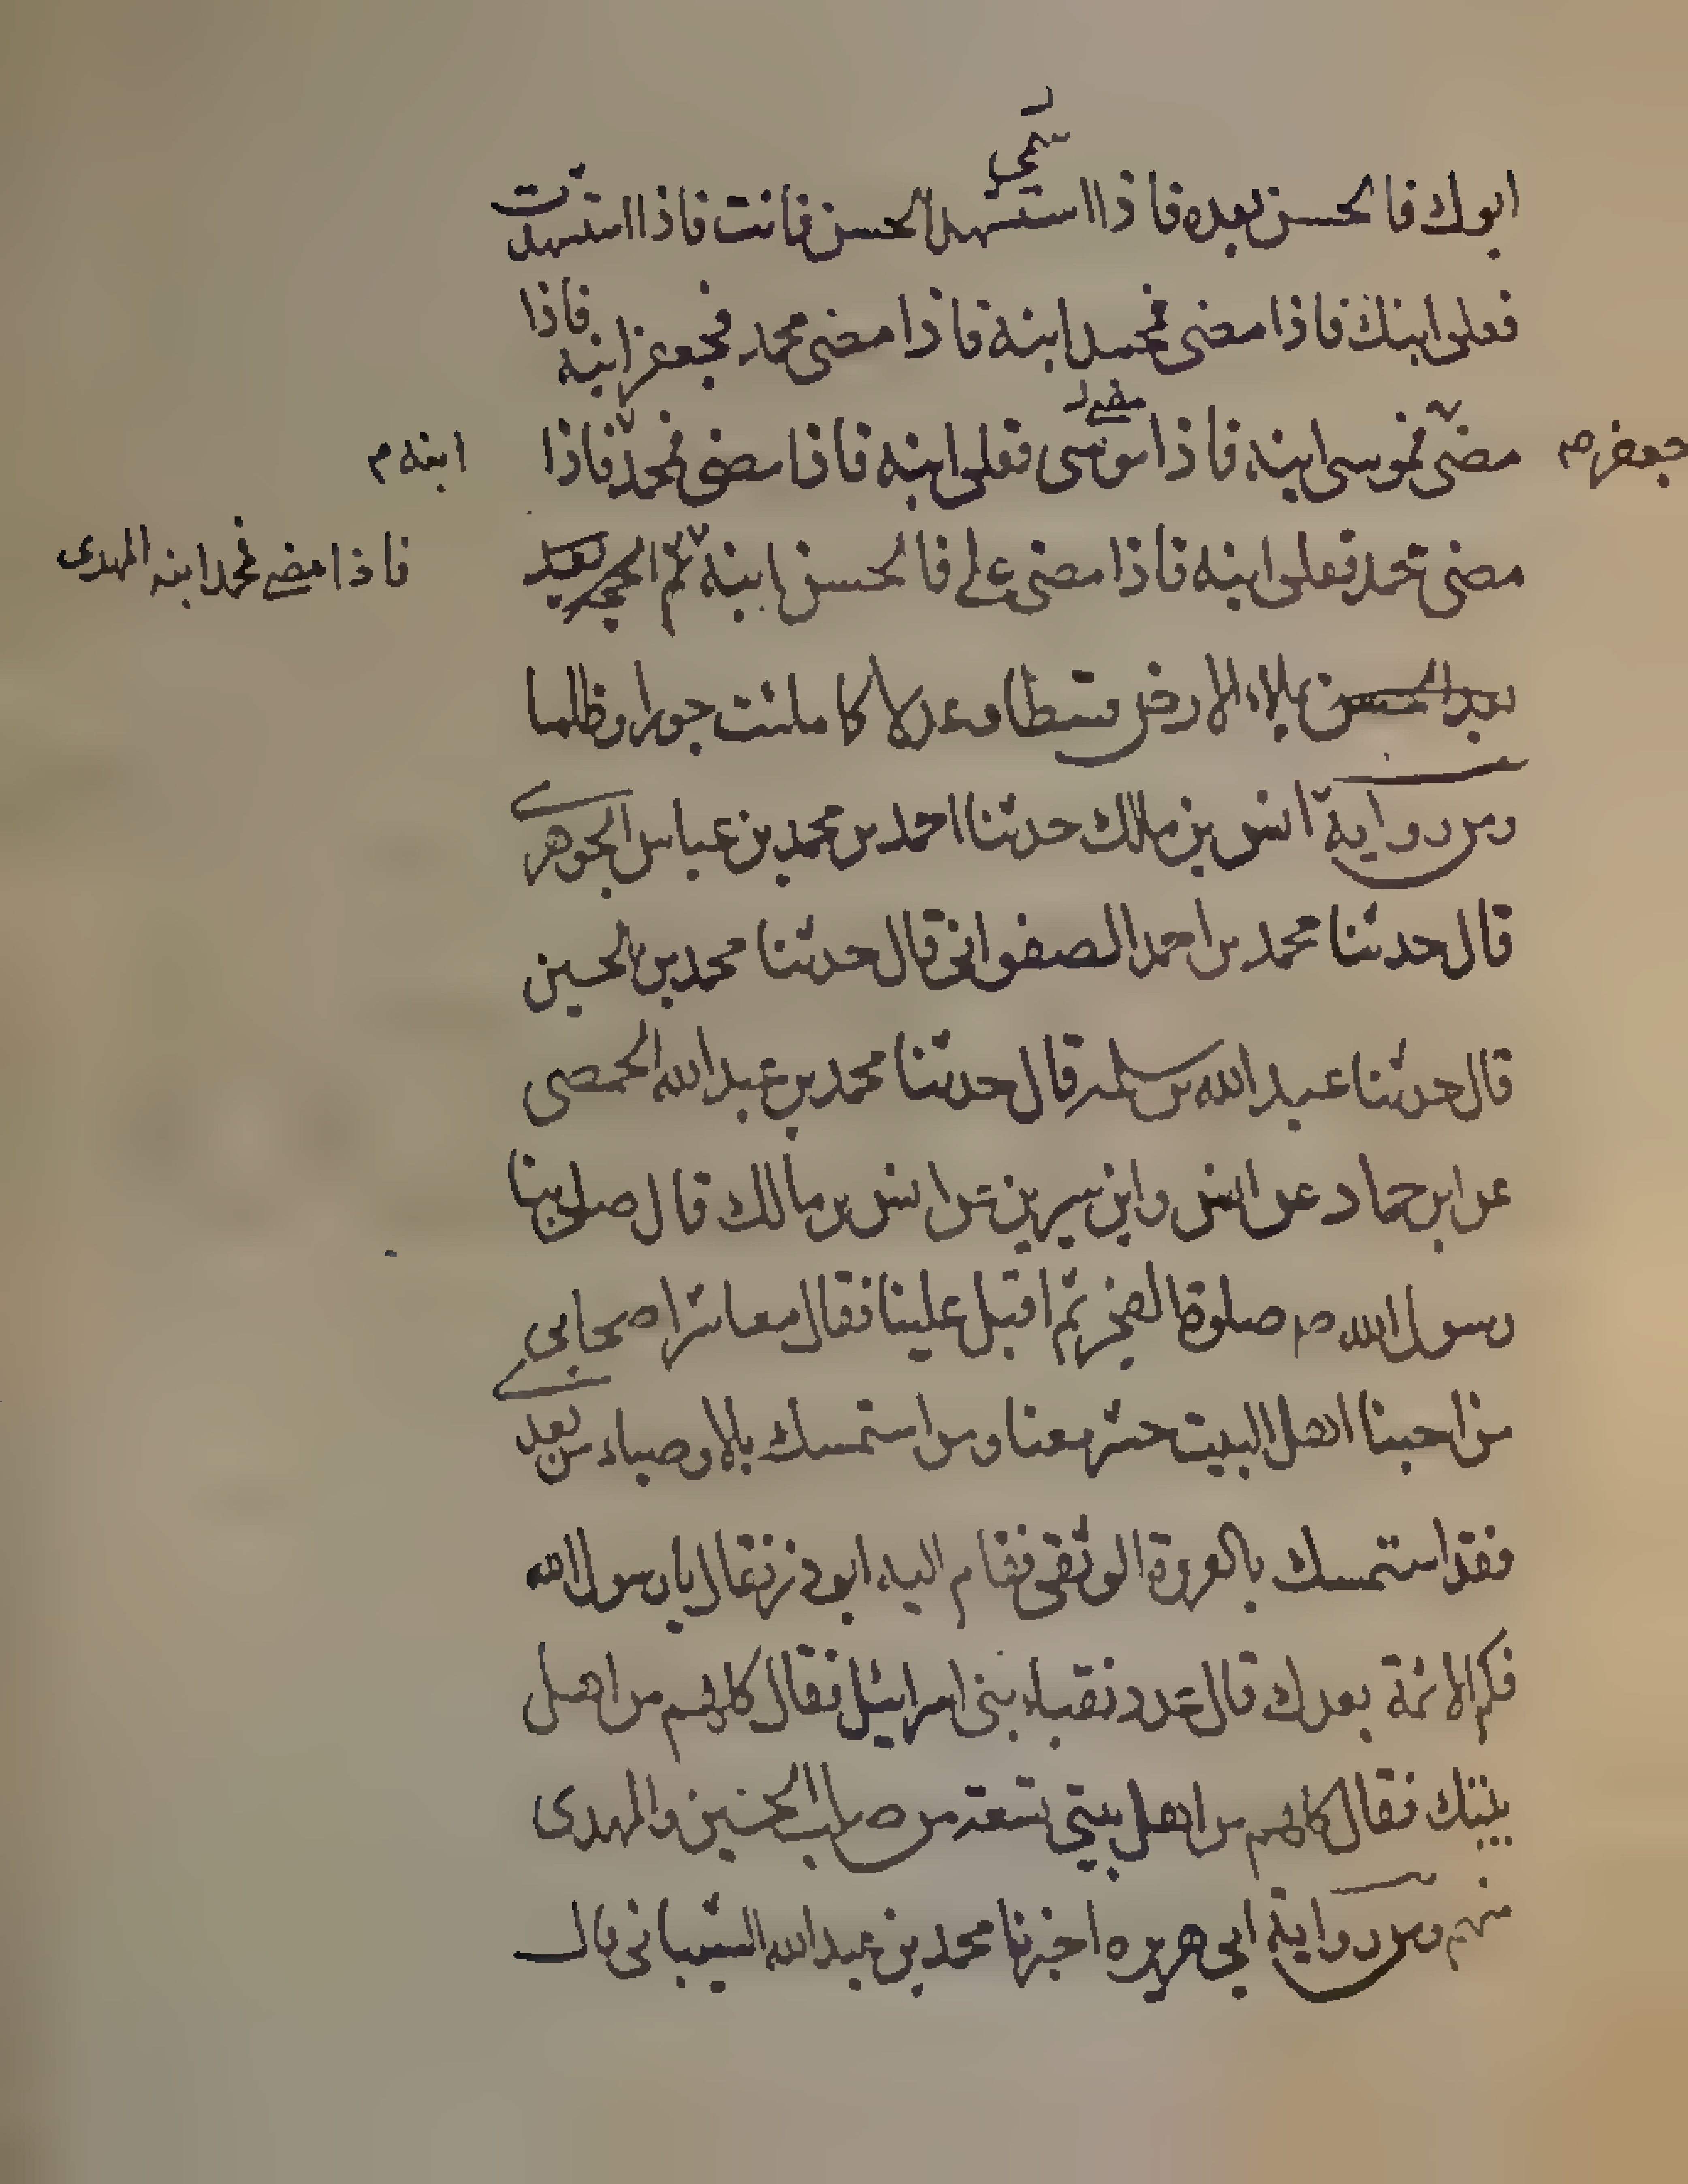 ابوك فالحسن بعده فاذا استشهد الحسن فانت فاذا استشهدت
فعلى ابنك فاذا مضى فمحمد ابنه فاذا مضى محمد فجعفر ابنه فاذا
جعفر م
مضى فموسى ابنه فاذا موسى فعلى ابنه فاذا مضى فمحمد فاذا
ابنه م
مضى محمد فعلى ابنه فاذا مضى على فالحسن ابنه ثم الحجة بعد
فاذا مضى فمحمد ابنه المهدى
بعد الحسن يملاء الارض قسطا وعدلا كما ملئت جورا وظلما
ومن رواية انس بن مالك حدثنا احمد بن محمد بن عباس الجوهرى
قال حدثنا محمد بن احمد الصفوانى قال حدثنا محمد بن الحسين
قال حدثنا عبد الله بن سلمه قال حدثنا محمد بن عبد الله الحمصى
عن ابن حماد عن انس وابن سيرين عن انس بن مالك قال صلى بنا
رسول الله ص صلوة الفجر ثم اقبل علينا فقال معاشر اصحابى
من احبنا اهل البيت حشر معنا ومن استمسك بالاوصياء من بعدى
فقد استمسك بالعروة الوثقى فقام اليه ابوذر فقال يا رسول الله
فكم الائمة بعدك قال عدد نقباء بنى اسرائيل فقال كلهم من اهل
بيتك فقال كلهم من اهل بيتى تسعة من صلب الحسين والمهدى
منهم ومن رواية ابى هريره اخبرنا محمد بن عبد الله الشيبانى قال